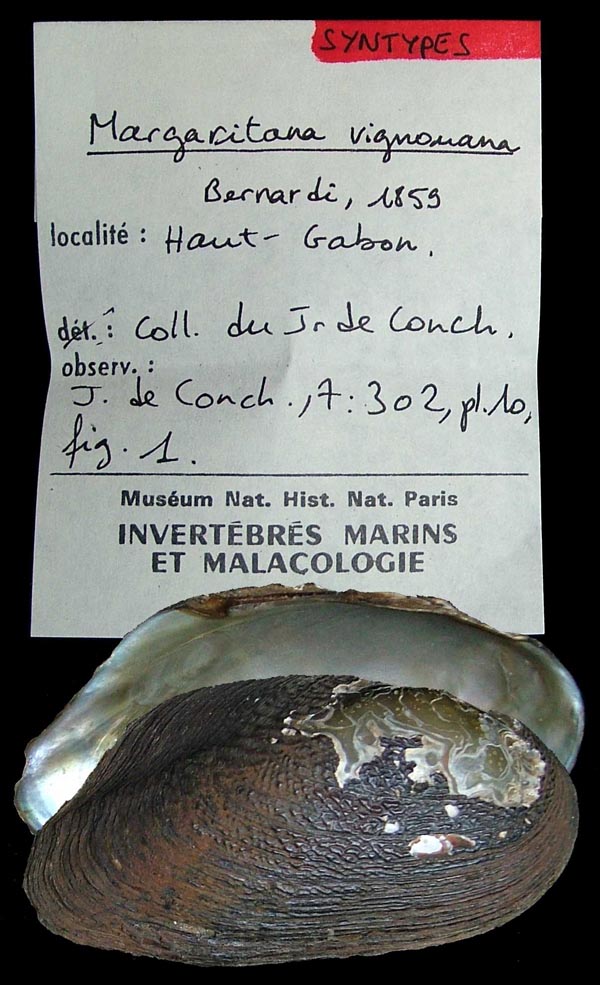 SYNTYPES
Margaritana vignouana
Bernardi, 1859
localité : Haut-Gabon.
dét. : Coll. du Jr de Conch.
observ. :
J. de Conch., 7: 302, pl. 10,
fig. 1.
Muséum Nat. Hist. Nat. Paris
INVERTÉBRÉS MARINS
ET MALACOLOGIE